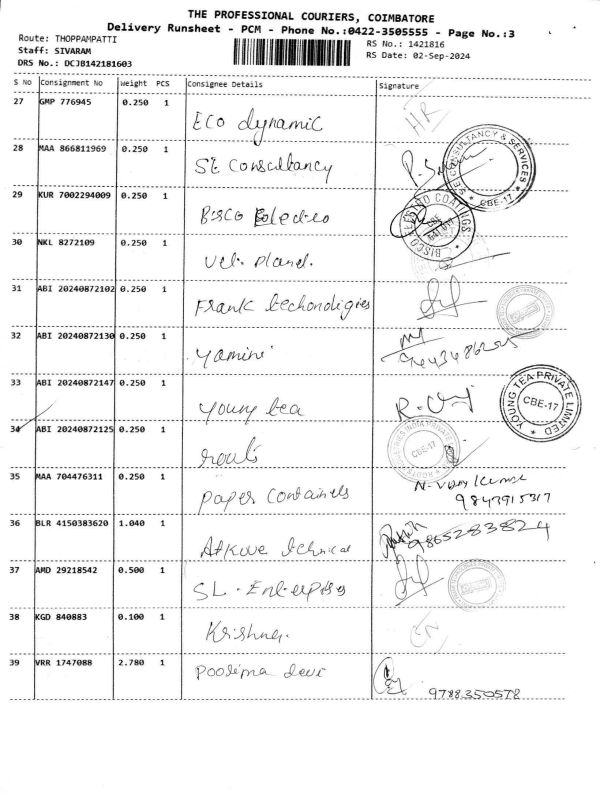 THE PROFESSIONAL COURIERS, COIMBATORE
Delivery Runsheet - PCM - Phone No.:0422-3505555 - Page No.:3
Route: THOPPAMPATTI
Staff: SIVARAM
DRS No.: DCJB142181603
RS No.: 1421816
RS Date: 02-Sep-2024
S No Consignment No Weight PCS Consignee Details Signature
27 GMP 776945 0.250 1 Eco dynamic HR
28 MAA 866811969 0.250 1 SE Consultancy
CONSULTANCY & SERVICES CBE-17
29 KUR 7002294009 0.250 1 Bisco
BISCO COATINGS CBE
30 NKL 8272109 0.250 1
31 ABI 20240872102 0.250 1 Frank techonoligies
32 ABI 20240872130 0.250 1 Yamini
33 ABI 20240872147 0.250 1 young tea
YOUNG TEA PRIVATE LIMITED CBE-17
34 ABI 20240872125 0.250 1 roots
ROOTS INDUSTRIES INDIA PRIVATE CBE-17
35 MAA 704476311 0.250 1 paper containers N. Vijay Kumar
9843915317
36 BLR 4150383620 1.040 1 technical
9865283824
37 AMD 29218542 0.500 1 SL. Enterprises
38 KGD 840883 0.100 1 Krishna.
39 VRR 1747088 2.780 1 Poorima devi
9788350578